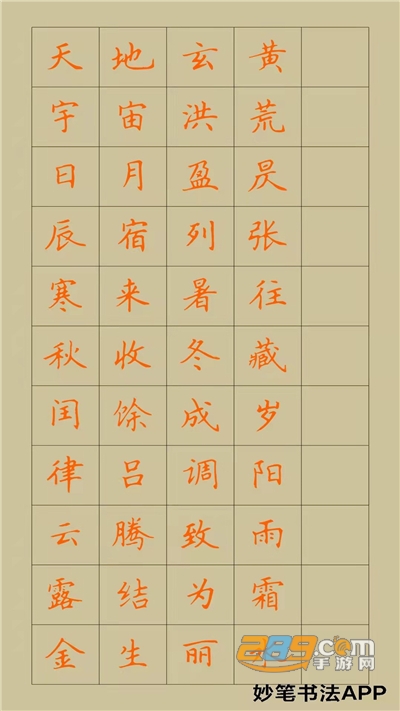 天 地 玄 黄
宇 宙 洪 荒
日 月 盈 昃
辰 宿 列 张
寒 来 暑 往
秋 收 冬 藏
闰 馀 成 岁
律 吕 调 阳
云 腾 致 雨
露 结 为 霜
金 生 丽
289.com
手游网
妙笔书法APP